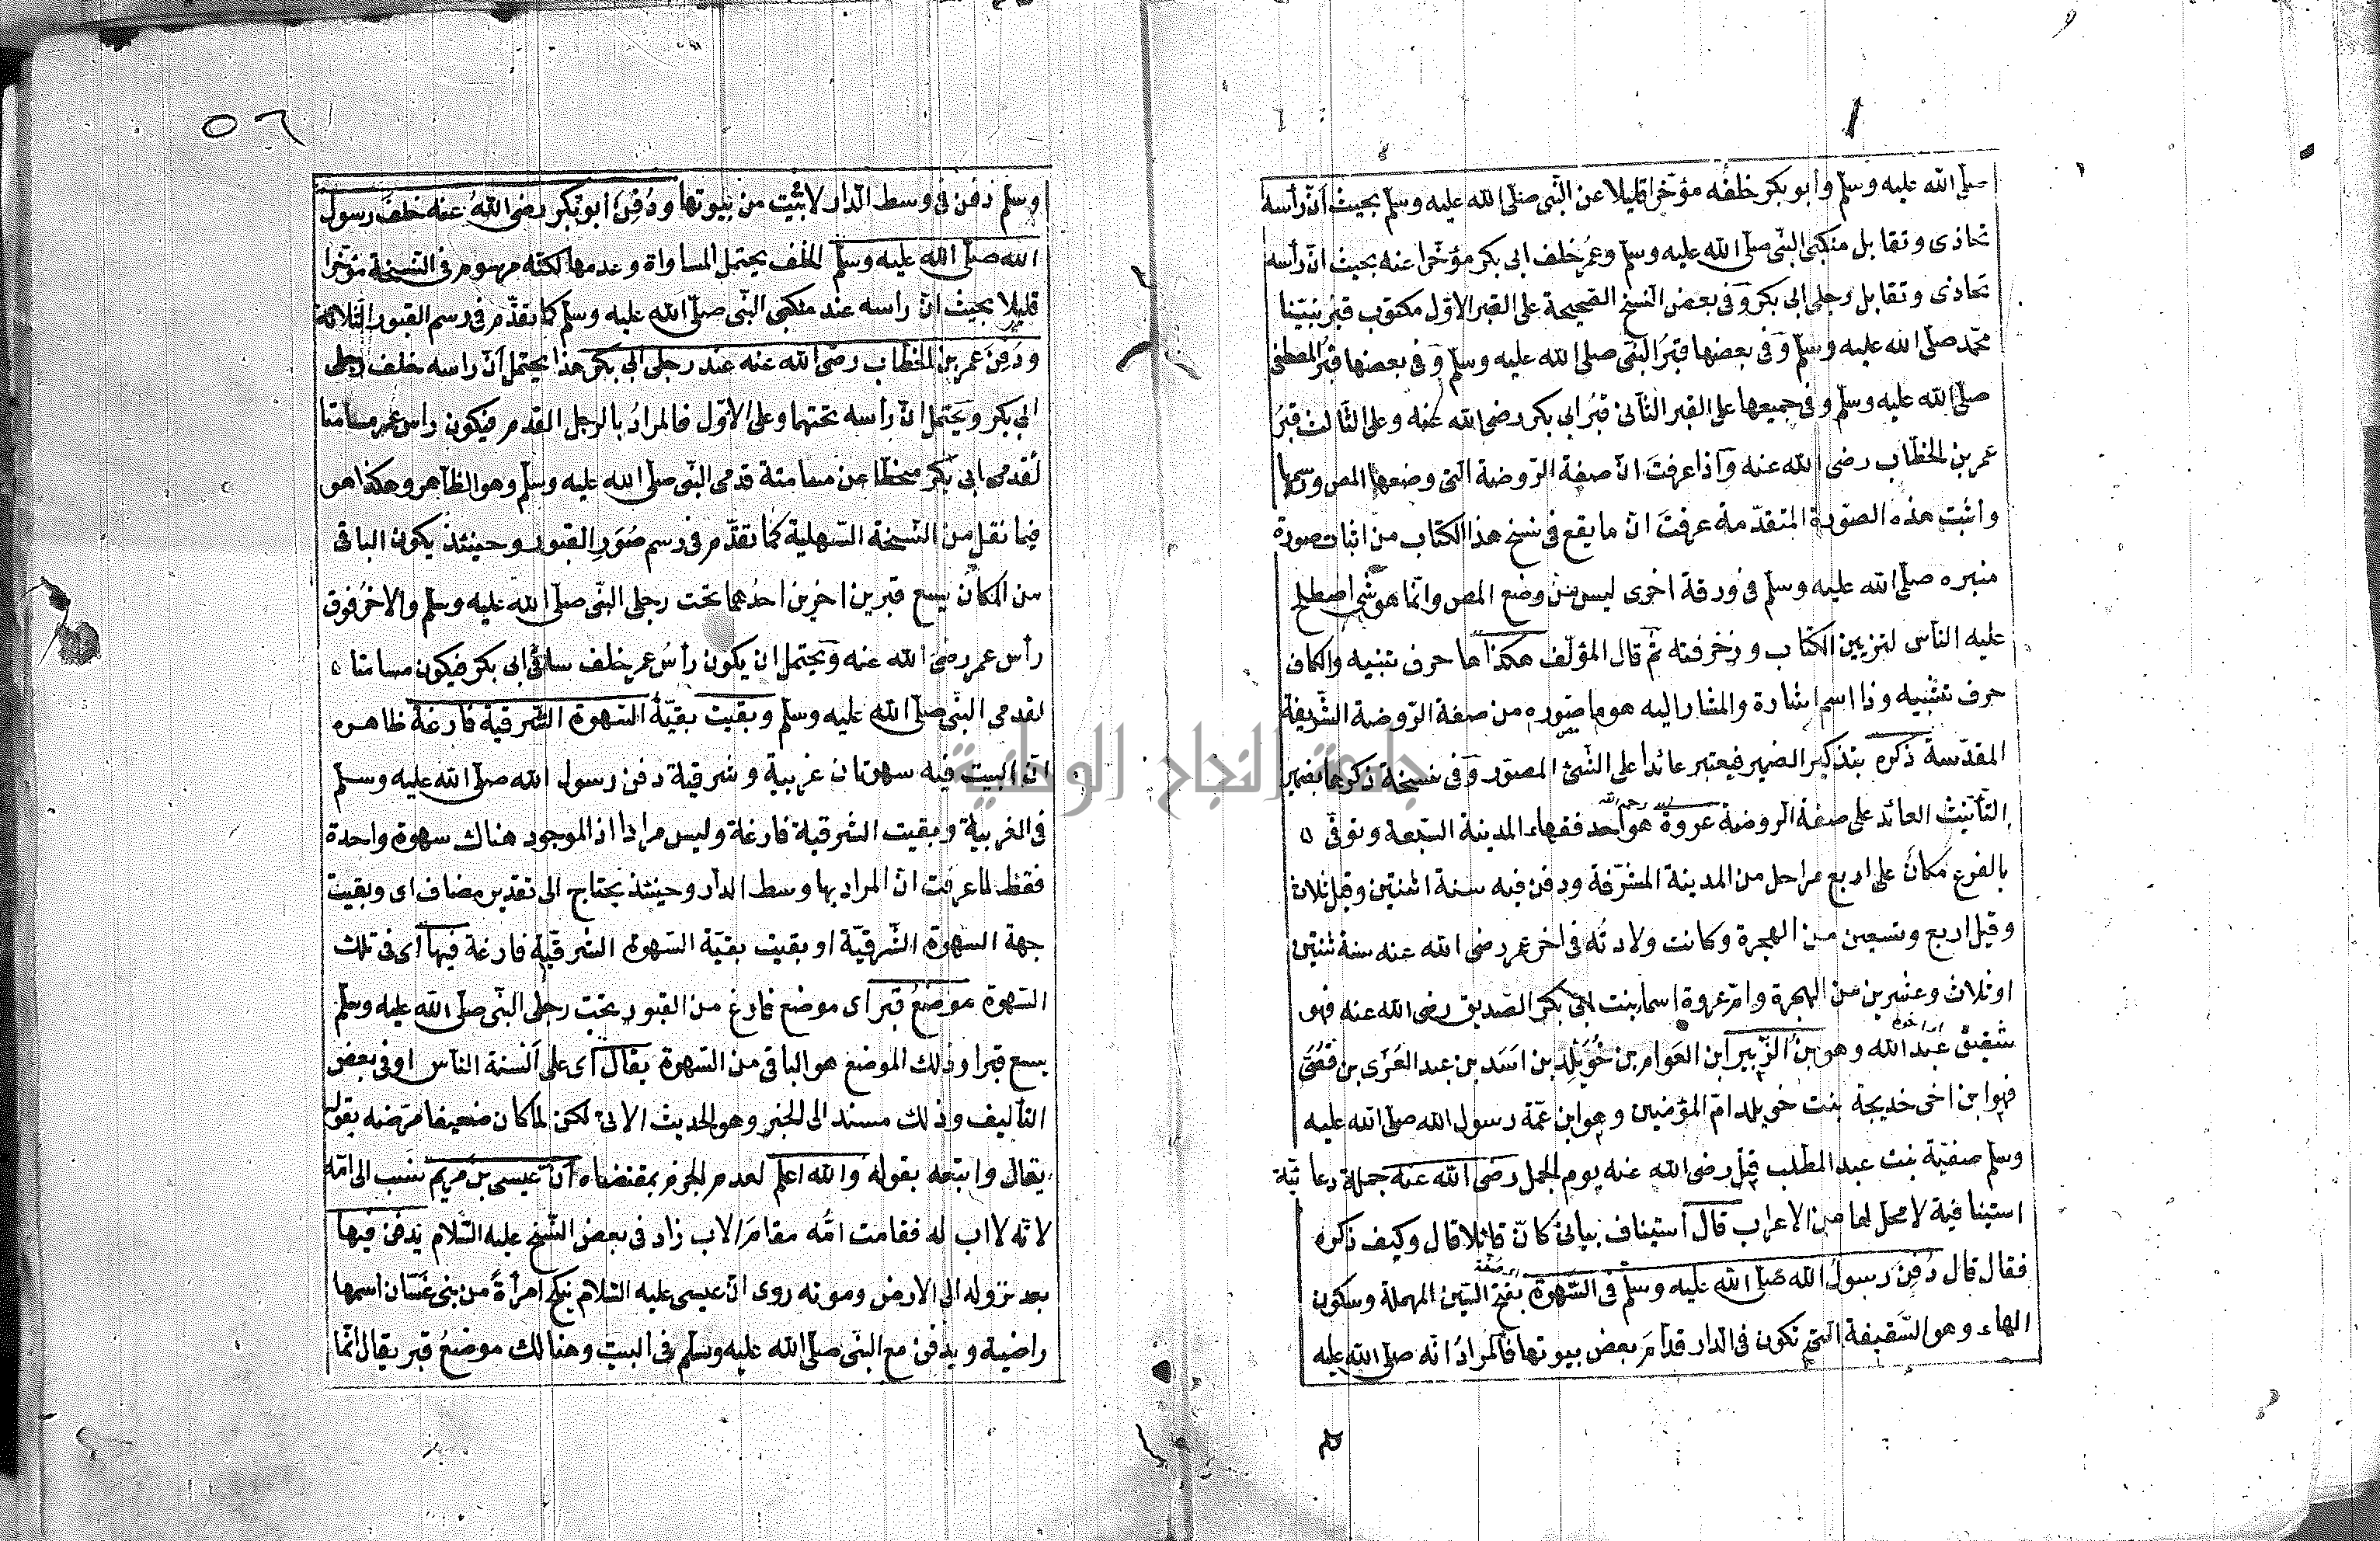 صلى الله عليه وسلم وأبو بكر خلفه مؤخرا قليلا عن النبى صلى الله عليه وسلم بحيث أن رأسه
تحاذى وتقابل منكبى النبى صلى الله عليه وسلم وعمر خلف ابى بكر مؤخرا عنه بحيث ان رأسه
تحاذى وتقابل رجلى ابى بكر وفى بعض النسخ الصحيحة على القبر الاول مكتوب قبر نبينا
محمد صلى الله عليه وسلم وفى بعضها قبر النبى صلى الله عليه وسلم وفى بعضها قبر المصطفى
صلى الله عليه وسلم وفى جميعها على القبر الثانى قبر ابى بكر رضى الله عنه وعلى الثالث قبر
عمر بن الخطاب رضى الله عنه واذا عرفت ان صفة الروضة التى وضعها المص ورسمها
وأثبت هذه الصورة المتقدمة عرفت ان ما يقع فى نسخ هذا الكتاب من اثبات صورة
منبره صلى الله عليه وسلم فى ورقة اخرى ليس من وضع المص وانما هو شئ اصطلح
عليه الناس لتزيين الكتاب وزخرفته ثم قال المؤلف هكذا ها حرف تنبيه والكاف
حرف تشبيه وذا اسم اشارة والمشار اليه هو ما صوره من صفة الروضة الشريفة
المقدسة ذكره بتذكير الضمير فيعتبر عائدا على الشئ المصور وفى نسخة ذكرها بضمير
التأنيث العائد على صفة الروضة عروة هو احد فقهاء المدينة السبعة وتوفى ٥
رحمه الله
بالفرع مكان على اربع مراحل من المدينة المشرفة ودفن فيه سنة اثنتين وقيل ثلاث
وقيل اربع وتسعين من الهجرة وكانت ولادته فى اخر عمر رضى الله عنه سنة ثنتين
او ثلاث وعشرين من الهجرة وام عروة اسما بنت ابى بكر الصديق رضى الله عنه فهو
شقيق عبد الله وهو بن الزبير ابن العوام بن خويلد بن اسد بن عبد العزى بن قصى
فهو ابن اخى خديجة بنت خويلد ام المؤمنين وهو ابن عمة رسول الله صلى الله عليه
وسلم صفية بنت عبد المطلب قتل رضى الله عنه يوم الجمل رضى الله عنه جملة دعائية
استينافية لا محل لها من الاعراب قال استيناف بيانى كأن قائلا قال وكيف ذكره
فقال قال دفن رسول الله صلى الله عليه وسلم فى السهوة بفتح السين المهملة وسكون
الهاء وهو السقيفة التى تكون فى الدار قدام بعض بيوتها فالمراد انه صلى الله عليه
وسلم
٥٦
وسلم دفن فى وسط الدار لا ببيت من بيوتها ودفن ابو بكر رضى الله عنه خلف رسول
الله صلى الله عليه وسلم الخلف يحتمل المساواة وعدمها لكنه مرسوم فى النسخة مؤخرا
قليلا بحيث ان راسه عند منكبى النبى صلى الله عليه وسلم كما تقدم فى رسم القبور الثلاثة
ودفن عمر بن الخطاب رضى الله عنه عند رجلى ابى بكر هذا يحتمل أن راسه خلف رجلى
ابى بكر ويحتمل ان رأسه تحتهما وعلى الاول فالمراد بالرجل القدم فيكون راس عمر مسامتا
لقدمى ابى بكر منحطا عن مسامتة قدمى النبى صلى الله عليه وسلم وهو الظاهر وهكذا هو
فيما نقل من النسخة السهلية كما تقدم فى رسم صور القبور وحينئذ يكون الباقى
من المكان يسع قبرين اخرين احدهما تحت رجلى النبى صلى الله عليه وسلم والاخر فوق
رأس عمر رضى الله عنه ويحتمل ان يكون رأس عمر خلف ساقى ابى بكر فيكون مسامتا ٥
لقدمى النبى صلى الله عليه وسلم وبقيت بقية السهوة الشرقية فارغة ظاهره
ان البيت فيه سهوتان غربية وشرقية دفن رسول الله صلى الله عليه وسلم
فى الغربية وبقيت الشرقية فارغة وليس مرادا اذ الموجود هناك سهوة واحدة
فقط لما عرفت ان المراد بها وسط الدار وحينئذ يحتاج الى تقدير مضاف اى وبقيت
جهة السهوة الشرقية او بقيت بقية السهوة الشرقية فارغة فيها اى فى تلك
السهوة موضع قبر اى موضع فارغ من القبور تحت رجلى النبى صلى الله عليه وسلم
يسع قبرا وذلك الموضع هو الباقى من السهوة يقال اى على ألسنة الناس او فى بعض
التأليف وذلك مستند الى الخبر وهو الحديث الاتى لكن لما كان ضعيفا مرضه بقوله
يقال واتبعه بقوله والله اعلم لعدم الجزم بمقتضاه ان عيسى بن مريم نسب الى امه
لانه لا اب له فقامت امه مقام الاب زاد فى بعض النسخ عليه السلام يدفن فيها
بعد نزوله الى الارض وموته روى ان عيسى عليه السلام ينكح امرأة من بنى غسان اسمها
راضية ويدفن مع النبى صلى الله عليه وسلم فى البيت وهنالك موضع قبر يقال انما
جامعة النجاح الوطنية